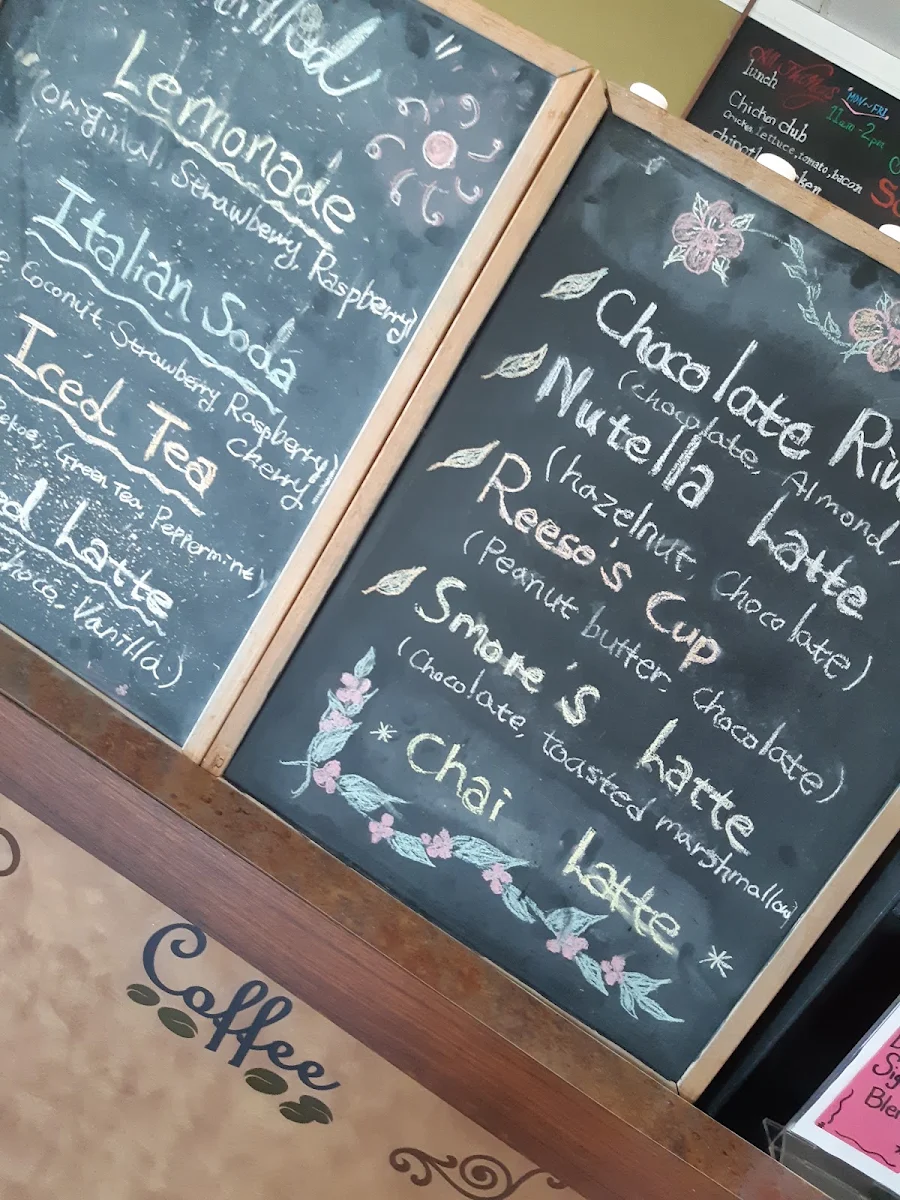 Lemonade
(original, Strawberry, Raspberry)
Italian Soda
Coconut, Strawberry, Raspberry,
Cherry)
Iced Tea
Pekoe, Green Tea, Peppermint)
Latte
Choco, Vanilla)
Chocolate
(Chocolate, Almond,
Nutella Latte
(hazelnut, Chocolate)
Reese's Cup
(Peanut butter, chocolate)
Smore's Latte
(Chocolate, toasted marshmallow)
* Chai Latte *
lunch
MON~FRI
11am-2pm
Chicken club
Chicken, lettuce, tomato, bacon
Coffee